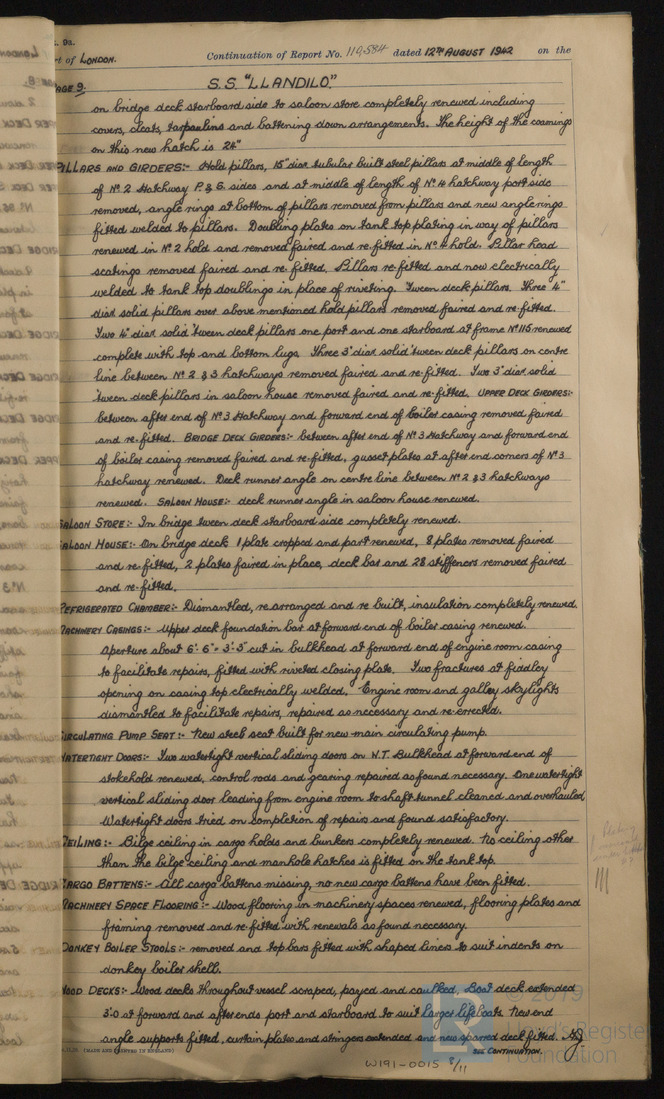 . 9a.
rt of LONDON.
Continuation of Report No. 119584 dated 12TH AUGUST 1942 on the
AGE 9.
S.S. "LLANDILO"
on bridge deck starboard side to saloon store completely renewed including
covers, cleats, tarpaulins and battening down arrangements. The height of the coamings
on this new hatch is 24"
PILLARS AND GIRDERS:- Hold pillars, 15" diar tubular built steel pillars at middle of length
of No 2 Hatchway P. & S. sides and at middle of length of No 4 hatchway port side
removed, angle rings at bottom of pillars removed from pillars and new angle rings
fitted welded to pillars. Doubling plates on tank top plating in way of pillars
renewed in No 2 hold and removed faired and re-fitted in No 4 hold. Pillar head
seatings removed faired and re-fitted. Pillars re-fitted and now electrically
welded to tank top doublings in place of riveting. Tween deck pillars. Three 4"
diar solid pillars over above mentioned hold pillars removed faired and re-fitted.
Two 4" diar solid 'tween deck pillars one port and one starboard at frame No 115 renewed
complete with top and bottom lugs. Three 3" diar solid 'tween deck pillars on centre
line between No 2 & 3 hatchways removed faired and re-fitted. Two 3" diar solid
'tween deck pillars in saloon house removed faired and re-fitted. UPPER DECK GIRDERS:-
between after end of No 3 Hatchway and forward end of boiler casing removed faired
and re-fitted. BRIDGE DECK GIRDERS:- between after end of No 3 Hatchway and forward end
of boiler casing removed faired and re-fitted, gusset plates at after end corners of No 3
hatchway renewed. Deck runner angle on centre line between No 2 & 3 hatchways
renewed. SALOON HOUSE:- deck runner angle in saloon house renewed.
SALOON STORE:- In bridge tween deck starboard side completely renewed.
SALOON HOUSE:- On bridge deck 1 plate cropped and part renewed, 8 plates removed faired
and re-fitted, 2 plates faired in place, deck bar and 28 stiffeners removed faired
and re-fitted.
REFRIGERATED CHAMBER:- Dismantled, re arranged and re built, insulation completely renewed.
MACHINERY CASINGS:- Upper deck foundation bar at forward end of boiler casing renewed.
Aperture about 6'-6" × 3'-3" cut in bulkhead at forward end of engine room casing
to facilitate repairs, fitted with riveted closing plate. Two fractures at fiddley
opening on casing top electrically welded. Engine room and galley skylights
dismantled to facilitate repairs, repaired as necessary and re-erected.
CIRCULATING PUMP SEAT:- New steel seat built for new main circulating pump.
WATERTIGHT DOORS:- Two watertight vertical sliding doors on W.T. Bulkhead at forward end of
stokehold renewed, control rods and gearing repaired as found necessary. One watertight
vertical sliding door leading from engine room to shaft tunnel cleaned and overhauled
Watertight doors tried on completion of repairs and found satisfactory.
CEILING:- Bilge ceiling in cargo holds and bunkers completely renewed. No ceiling other
than the bilge ceiling and manhole hatches is fitted on the tank top.
CARGO BATTENS:- All cargo battens missing, no new cargo battens have been fitted.
MACHINERY SPACE FLOORING:- Wood flooring in machinery spaces renewed, flooring plates and
framing removed and re-fitted with renewals as found necessary.
DONKEY BOILER STOOLS:- removed and top bars fitted with shaped liners to suit indents on
donkey boiler shell.
WOOD DECKS:- Wood decks throughout vessel scraped, payed and caulked. Boat deck extended
3'-0 at forward and after ends port and starboard to suit larger lifeboats. New end
angle supports fitted, curtain plates and stringers extended and new sparred deck fitted.
SEE CONTINUATION.
(MADE AND PRINTED IN ENGLAND)
W191-0015 8/11
© 2019
Lloyd's Register
Foundation